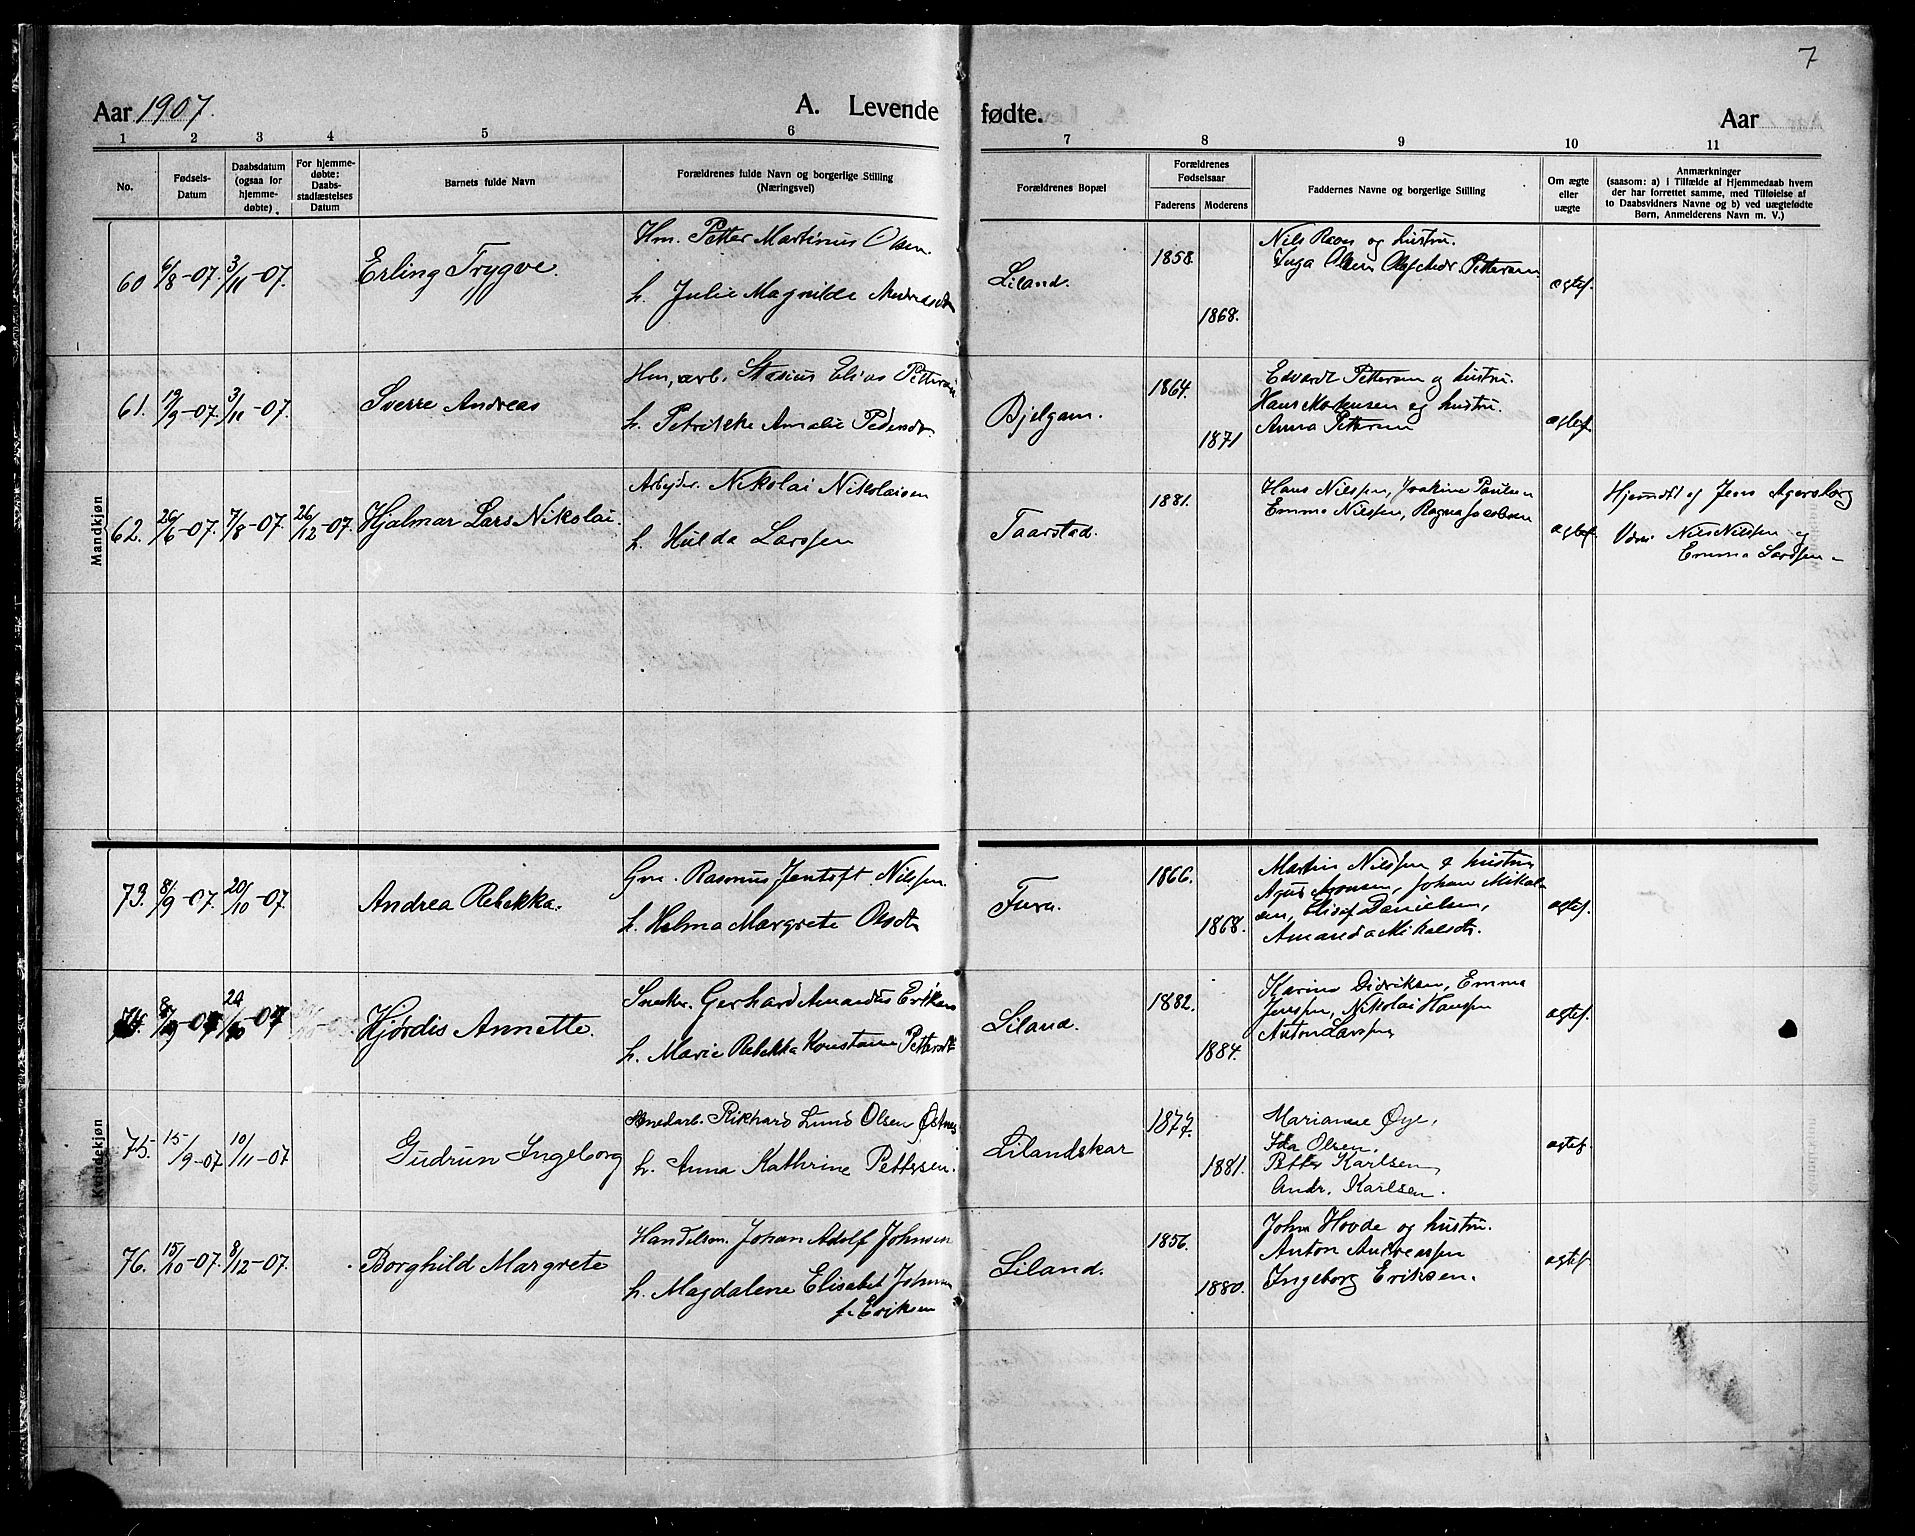 7
Aar 1907. A. Levende fødte. Aar
1 2 3 4 5 6 7 8 9 10 11
No.
Fødsels-Datum
Daabsdatum (ogsaa for hjemme-døbte)
For hjemme-døbte: Daabs-stadfæstelses Datum
Barnets fulde Navn
Forældrenes fulde Navn og borgerlige Stilling (Næringsvei)
Forældrenes Bopæl
Forældrenes Fødselsaar
Faderens Moderens
Faddernes Navne og borgerlige Stilling
Om ægte eller uægte
Anmærkninger
(saasom: a) i Tilfælde af Hjemmedaab hvem
der har forrettet samme, med Tilføielse af
to Daabsvidners Navne og b) ved uægtefødte
Børn, Anmelderens Navn m. V.)
Mandkjøn
60 6/8-07. 3/11-07. Erling Trygve.
Hm. Petter Martinus Olsen.
h. Julie Magnilde
Liland. 1858. 1868.
Nils Ravn og hustru.
Inga Olsen Pettersen
ægtef.
61. 19/9-07. 3/11-07. Sverre Andreas
Hm, arb. Elias Pettersen
h. Petrikke Amalie Pedersdr.
Bjelgam. 1864. 1871
Edvardt Pettersen og hustru.
Hans og hustru.
Anna Pettersen
ægtef.
62. 26/6-07. 7/8-07. 26/12-07. Hjalmar Lars Nikolai.
Arbejder. Nikolai Nikolaisen
h. Hulda Larssen
Taarstad. 1881.
Hans Nilssen, Joakine Paulsen
Emma Nilssen, Ragna Jacobsen
ægtef.
Hjemdt af Jens Agersborg
Vidner Nils Nilssen og
Emma Larssen
Kvindekjøn
73. 8/9-07. 20/10-07. Andrea Rebekka.
Gm. Rasmus Jentoft Nilssen.
h. Helma Margrete Olsdtr
Furu. 1866. 1868.
Martin Nilssen & hustru
Johan Mikal-
sen, Danielsen,
Amanda Mikalsdtr.
ægtef.
74. 8/9-07 20/10-07 Hjørdis Annette.
Snedker. Gerhard Amandus Eriksen
h. Marie Rebekka Konstanse Pettersdtr
Liland. 1882. 1884.
Karine Didriksen, Emma
Jenssen, Nikolai Hanssen
Anton Larssen
ægtef.
75. 15/9-07 10/11-07 Gudrun Ingeborg
Rikhard Lund Olsen Østnes
h. Anna Kathrine Pettersen.
Lilandskar 1877. 1881.
Marianne Øye,
Ida Olsen.
Petter Karlsen,
Andr. Karlsen.
ægtef.
76. 15/10-07. 8/12-07. Borghild Margrete
Handelsm. Johan Adolf Johnsen
h. Magdalene Elisabet Johnsen
f. Eriksen
Liland. 1856. 1880.
John Hovde og hustru.
Anton Andreassen
Ingeborg Eriksen.
ægtef.